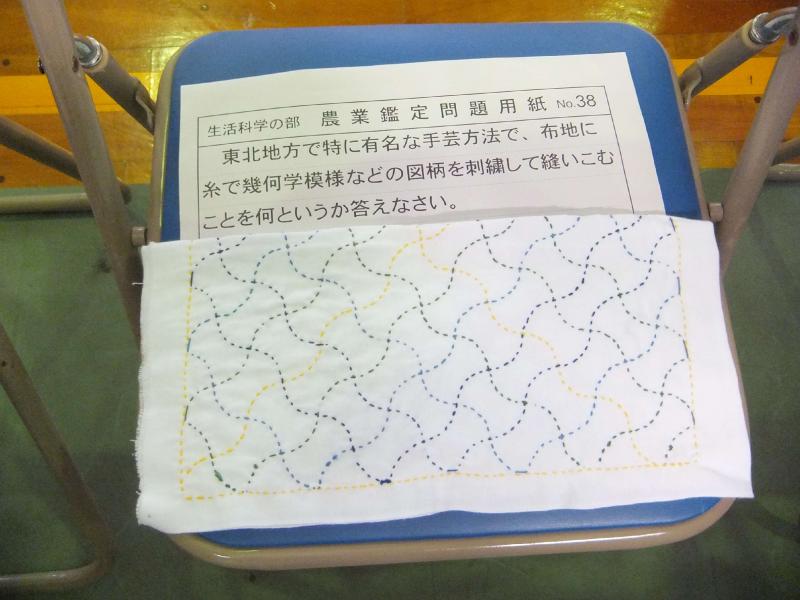 生活科学の部 農業鑑定問題用紙 No.38
東北地方で特に有名な手芸方法で、布地に
糸で幾何学模様などの図柄を刺繍して縫いこむ
ことを何というか答えなさい。